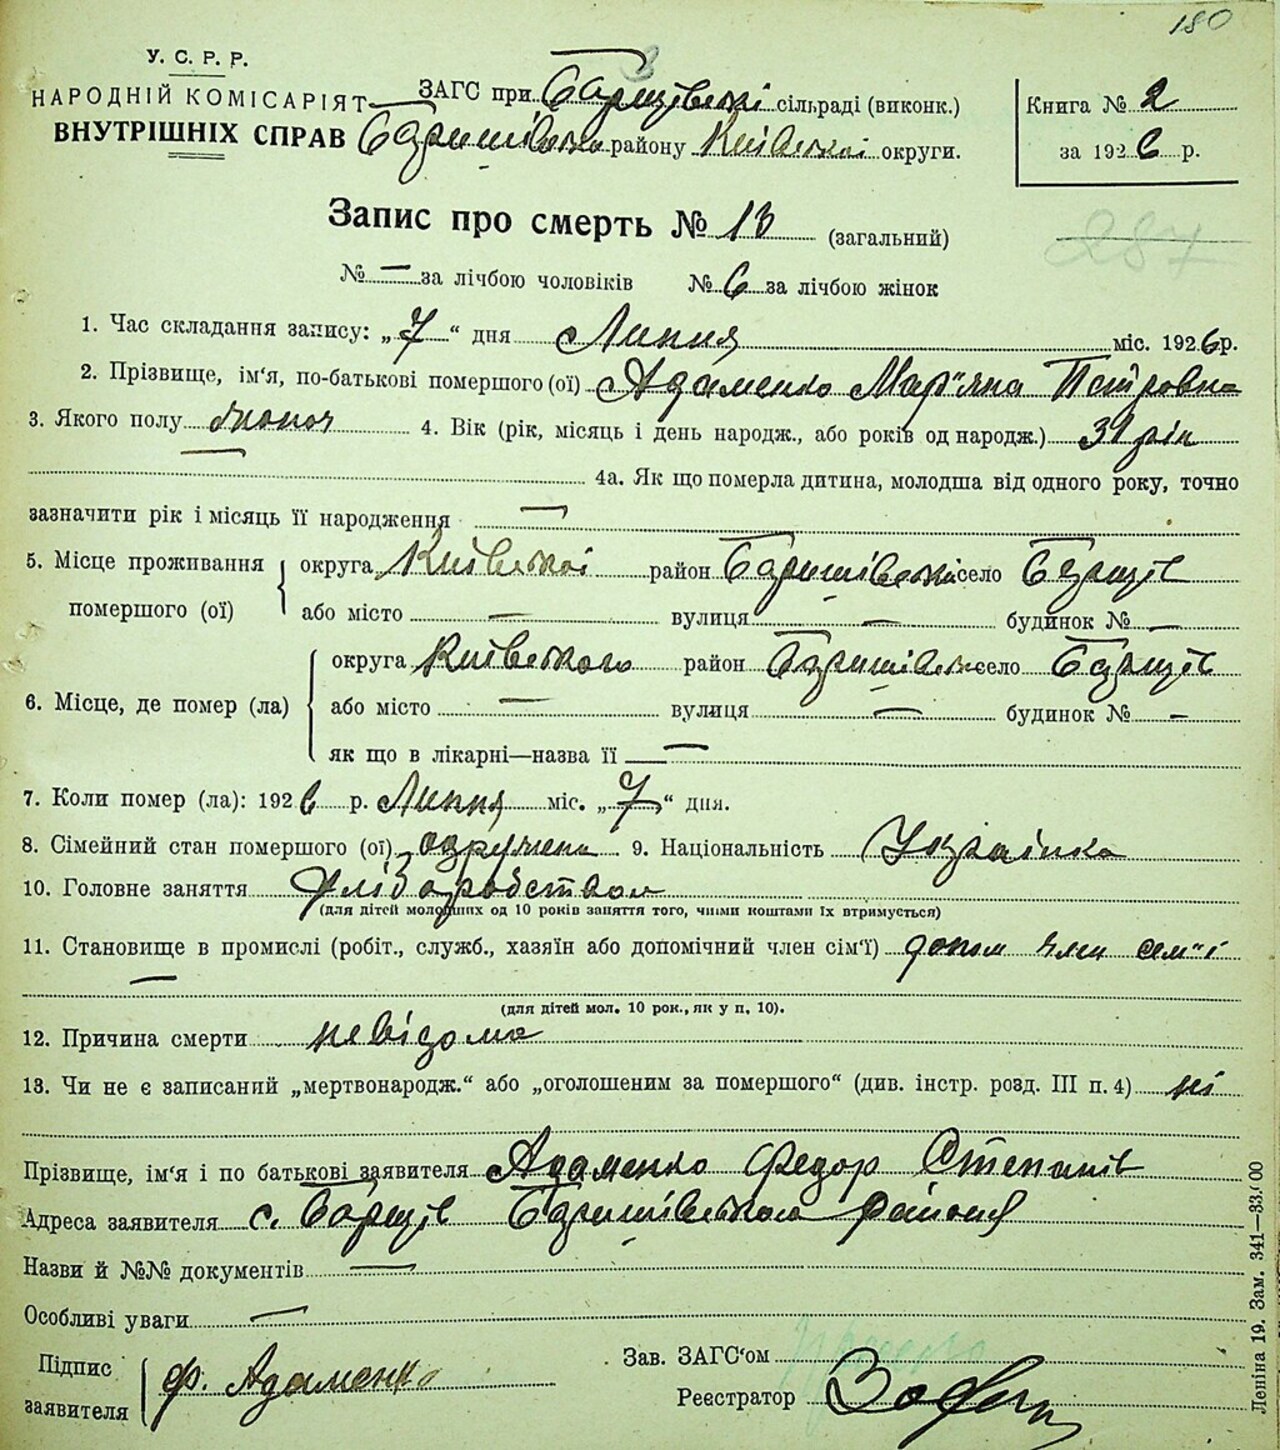 180
У. С. Р. Р.
НАРОДНІЙ КОМІСАРІЯТ
ВНУТРІШНІХ СПРАВ
ЗАГС при Борщівські сільраді (виконк.)
Баришівського району Київської округи.
Книга № 2
за 1926 р.
Запис про смерть № 13 (загальний)
287
№ — за лічбою чоловіків № 6 за лічбою жінок
1. Час складання запису: „7“ дня Липня міс. 1926 р.
2. Прізвище, ім‘я, по-батькові помершого (ої) Адаменко Мар"яна Петровна
3. Якого полу жіноч 4. Вік (рік, місяць і день народж., або років од народж.) 31 рік
—
4а. Як що померла дитина, молодша від одного року, точно
зазначити рік і місяць її народження —
5. Місце проживання помершого (ої) округа Київської район Баришівський село Борщів
або місто — вулиця — будинок № —
6. Місце, де помер (ла) округа Київського район Баришівськ село Борщів
або місто — вулиця — будинок № —
як що в лікарні—назва її —
7. Коли помер (ла): 1926 р. Липня міс. „7“ дня.
8. Сімейний стан помершого (ої) одружена 9. Національність Українка
10. Головне заняття хліборобством
(для дітей молодших од 10 років заняття того, чиїми коштами їх втримується)
11. Становище в промислі (робіт., служб., хазяїн або допомічний член сім‘ї) допом член сем"ї
—
(для дітей мол. 10 рок., як у п. 10).
12. Причина смерти невідома
13. Чи не є записаний „мертвонародж.“ або „оголошеним за помершого“ (див. інстр. розд. III п. 4) ні
Прізвище, ім‘я і по батькові заявителя Адаменко Федор Степанів
Адреса заявителя с. Борщів Баришівського района
Назви й №№ документів —
Особливі уваги —
Підпис заявителя Ф. Адаменко
Зав. ЗАГС‘ом
Реєстратор
Леніна 19. Зам. 341—33.000